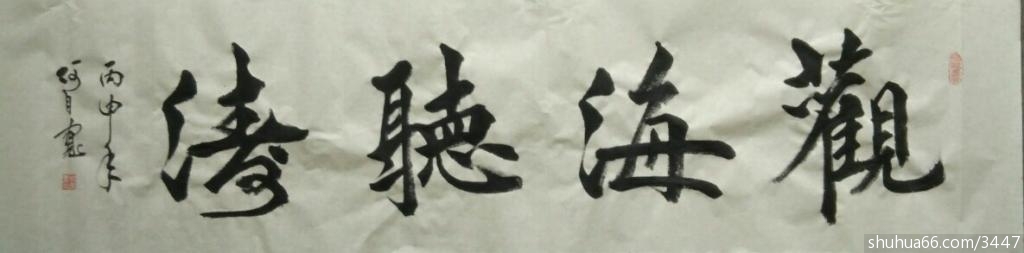 觀海聽濤
丙申年
何自寬
shuhua66.com/3447